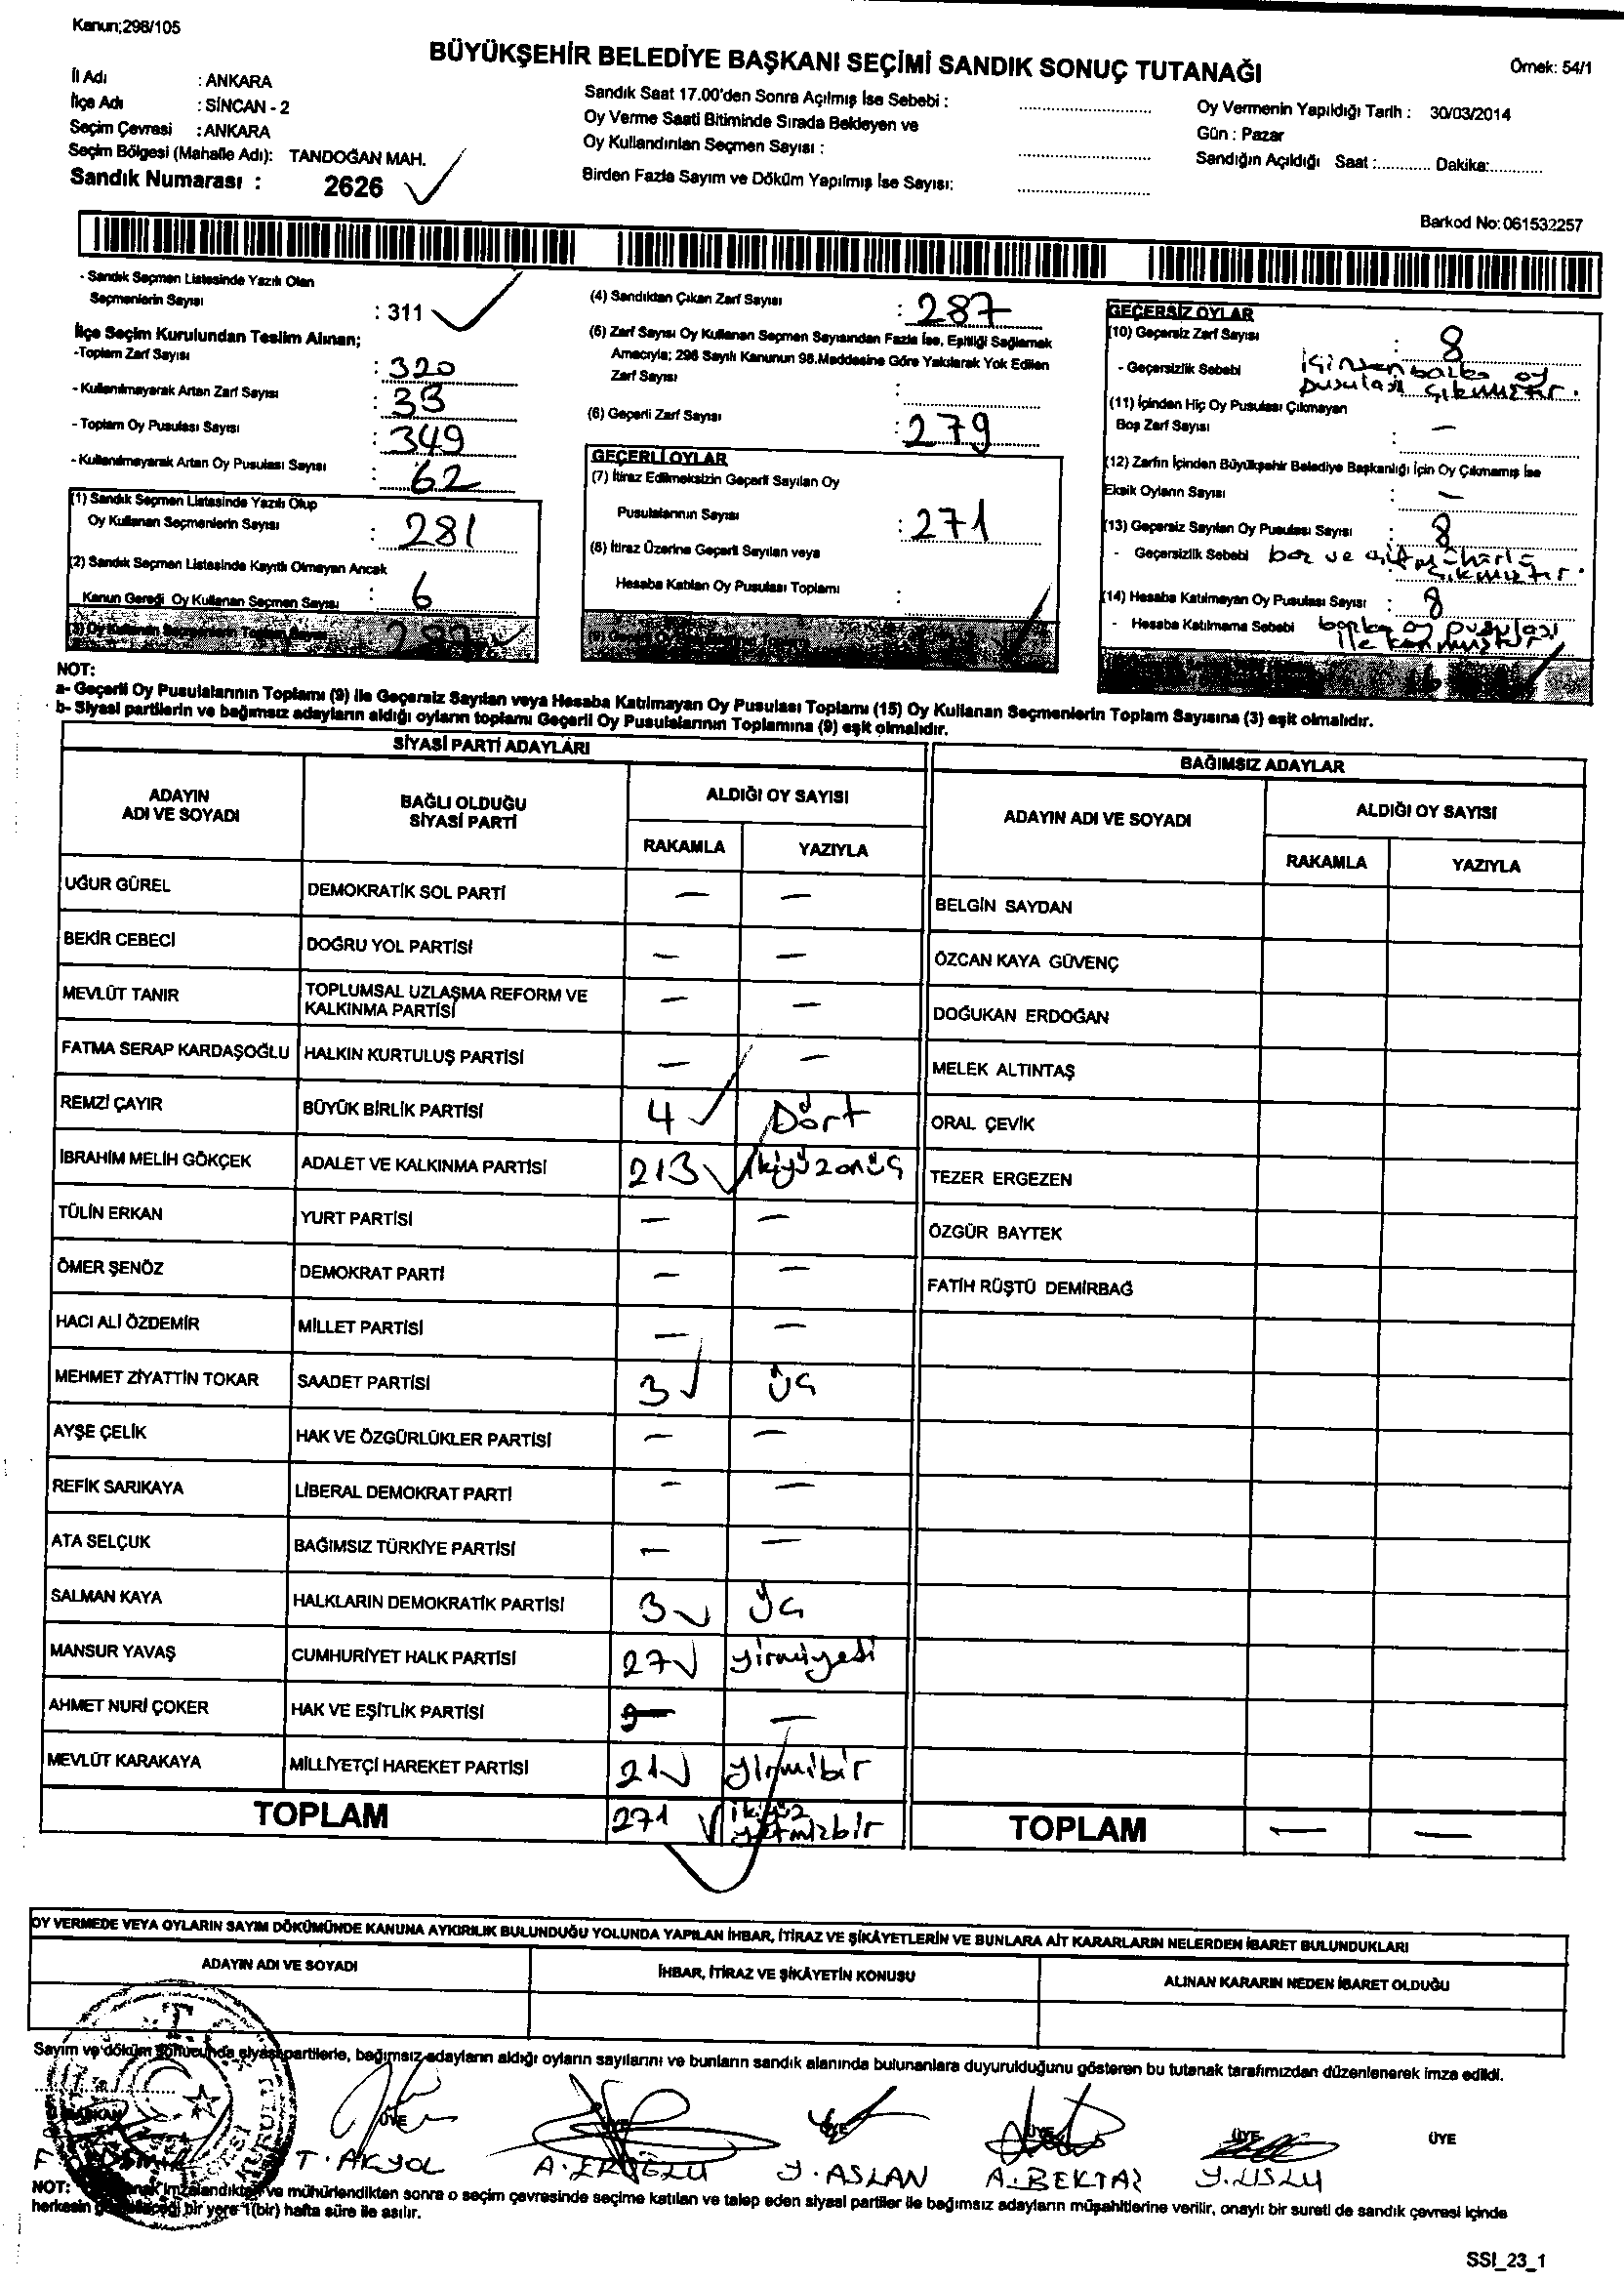 Kanun;298/105
BÜYÜKŞEHİR BELEDİYE BAŞKANI SEÇİMİ SANDIK SONUÇ TUTANAĞI
Örnek: 54/1
İl Adı : ANKARA
İlçe Adı : SİNCAN - 2
Seçim Çevresi : ANKARA
Seçim Bölgesi (Mahalle Adı): TANDOĞAN MAH.
Sandık Numarası : 2626
Sandık Saat 17.00'den Sonra Açılmış İse Sebebi :
Oy Verme Saati Bitiminde Sırada Bekleyen ve
Oy Kullandırılan Seçmen Sayısı :
Birden Fazla Sayım ve Döküm Yapılmış İse Sayısı:
Oy Vermenin Yapıldığı Tarih : 30/03/2014
Gün : Pazar
Sandığın Açıldığı Saat :............ Dakika:............
Barkod No: 061532257
- Sandık Seçmen Listesinde Yazılı Olan
Seçmenlerin Sayısı : 311
İlçe Seçim Kurulundan Teslim Alınan;
-Toplam Zarf Sayısı : 320
- Kullanılmayarak Artan Zarf Sayısı : 33
- Toplam Oy Pusulası Sayısı : 349
- Kullanılmayarak Artan Oy Pusulası Sayısı : 62
(1) Sandık Seçmen Listesinde Yazılı Olup
Oy Kullanan Seçmenlerin Sayısı : 281
(2) Sandık Seçmen Listesinde Kayıtlı Olmayan Ancak
Kanun Gereği Oy Kullanan Seçmen Sayısı : 6
(3) Oy Kullanan Seçmenlerin Toplam Sayısı 287
(4) Sandıktan Çıkan Zarf Sayısı : 287
(5) Zarf Sayısı Oy Kullanan Seçmen Sayısından Fazla İse, Eşitliği Sağlamak
Amacıyla; 298 Sayılı Kanunun 98.Maddesine Göre Yakılarak Yok Edilen
Zarf Sayısı :
(6) Geçerli Zarf Sayısı : 279
GEÇERLİ OYLAR
(7) İtiraz Edilmeksizin Geçerli Sayılan Oy
Pusulalarının Sayısı : 271
(8) İtiraz Üzerine Geçerli Sayılan veya
Hesaba Katılan Oy Pusulası Toplamı :
(9) Geçerli Oy Pusulalarının Toplamı
GEÇERSİZ OYLAR
(10) Geçersiz Zarf Sayısı : 8
- Geçersizlik Sebebi içinden başka oy
pusulası çıkmıştır.
(11) İçinden Hiç Oy Pusulası Çıkmayan
Boş Zarf Sayısı : —
(12) Zarfın İçinden Büyükşehir Belediye Başkanlığı İçin Oy Çıkmamış İse
Eksik Oyların Sayısı : —
(13) Geçersiz Sayılan Oy Pusulası Sayısı : 8
- Geçersizlik Sebebi boş ve çift mühürlü
çıkmıştır.
(14) Hesaba Katılmayan Oy Pusulası Sayısı : 8
- Hesaba Katılmama Sebebi başka oy pusulası
ile konmuştur
16
NOT:
a- Geçerli Oy Pusulalarının Toplamı (9) ile Geçersiz Sayılan veya Hesaba Katılmayan Oy Pusulası Toplamı (15) Oy Kullanan Seçmenlerin Toplam Sayısına (3) eşit olmalıdır.
b- Siyasi partilerin ve bağımsız adayların aldığı oyların toplamı Geçerli Oy Pusulalarının Toplamına (9) eşit olmalıdır.
SİYASİ PARTİ ADAYLARI
ADAYIN ADI VE SOYADI
BAĞLI OLDUĞU SİYASİ PARTİ
ALDIĞI OY SAYISI
RAKAMLA YAZIYLA
UĞUR GÜREL DEMOKRATİK SOL PARTİ — —
BEKİR CEBECİ DOĞRU YOL PARTİSİ — —
MEVLÜT TANIR TOPLUMSAL UZLAŞMA REFORM VE KALKINMA PARTİSİ — —
FATMA SERAP KARDAŞOĞLU HALKIN KURTULUŞ PARTİSİ — —
REMZİ ÇAYIR BÜYÜK BİRLİK PARTİSİ 4 Dört
İBRAHİM MELİH GÖKÇEK ADALET VE KALKINMA PARTİSİ 213 ikiyüzonüç
TÜLİN ERKAN YURT PARTİSİ — —
ÖMER ŞENÖZ DEMOKRAT PARTİ — —
HACI ALİ ÖZDEMİR MİLLET PARTİSİ — —
MEHMET ZİYATTİN TOKAR SAADET PARTİSİ 3 üç
AYŞE ÇELİK HAK VE ÖZGÜRLÜKLER PARTİSİ — —
REFİK SARIKAYA LİBERAL DEMOKRAT PARTİ — —
ATA SELÇUK BAĞIMSIZ TÜRKİYE PARTİSİ — —
SALMAN KAYA HALKLARIN DEMOKRATİK PARTİSİ 3 üç
MANSUR YAVAŞ CUMHURİYET HALK PARTİSİ 27 yirmiyedi
AHMET NURİ ÇOKER HAK VE EŞİTLİK PARTİSİ — —
MEVLÜT KARAKAYA MİLLİYETÇİ HAREKET PARTİSİ 21 yirmibir
TOPLAM 271 ikiyüz yetmişbir
BAĞIMSIZ ADAYLAR
ADAYIN ADI VE SOYADI
ALDIĞI OY SAYISI
RAKAMLA YAZIYLA
BELGİN SAYDAN
ÖZCAN KAYA GÜVENÇ
DOĞUKAN ERDOĞAN
MELEK ALTINTAŞ
ORAL ÇEVİK
TEZER ERGEZEN
ÖZGÜR BAYTEK
FATİH RÜŞTÜ DEMİRBAĞ
TOPLAM — —
OY VERMEDE VEYA OYLARIN SAYIM DÖKÜMÜNDE KANUNA AYKIRILIK BULUNDUĞU YOLUNDA YAPILAN İHBAR, İTİRAZ VE ŞİKÂYETLERİN VE BUNLARA AİT KARARLARIN NELERDEN İBARET BULUNDUKLARI
ADAYIN ADI VE SOYADI
İHBAR, İTİRAZ VE ŞİKÂYETİN KONUSU
ALINAN KARARIN NEDEN İBARET OLDUĞU
Sayım ve döküm sonucunda siyasi partilerle, bağımsız adayların aldığı oyların sayılarını ve bunların sandık alanında bulunanlara duyurulduğunu gösteren bu tutanak tarafımızdan düzenlenerek imza edildi.
BAŞKAN ÜYE ÜYE ÜYE ÜYE ÜYE ÜYE
T. AKYOL A. EROĞLU Y. ASLAN A. BEKTAŞ Y. USLU
NOT: imzalandıktan ve mühürlendikten sonra o seçim çevresinde seçime katılan ve talep eden siyasi partiler ile bağımsız adayların müşahitlerine verilir, onaylı bir sureti de sandık çevresi içinde
herkesin bir yere 1(bir) hafta süre ile asılır.
SSI_23_1